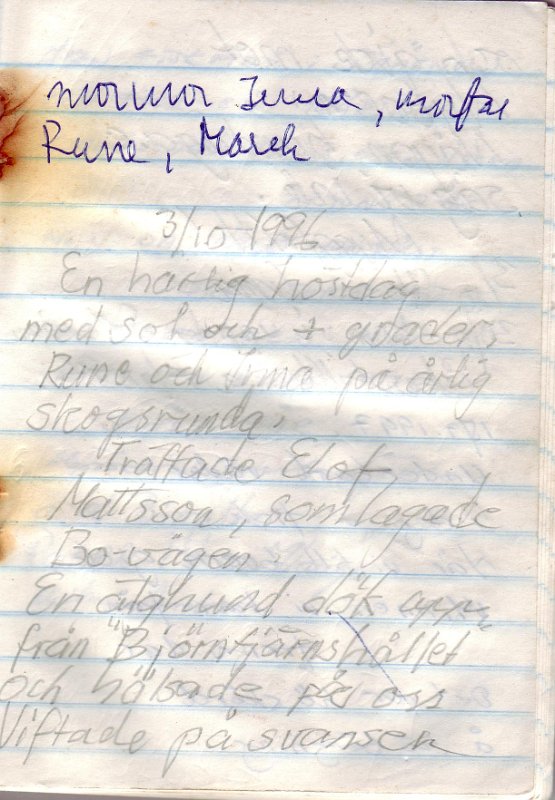 mormor Irma, morfar
Rune, Marek
3/10 1996
En härlig höstdag
med sol och + grader.
Rune och Irma på årlig
skogsrunda.
Träffade Elof
Mattsson, som lagade
Bo-vägen.
En älghund dök upp
från "Björntjärnshållet
och hälsade på oss
Viftade på svansen